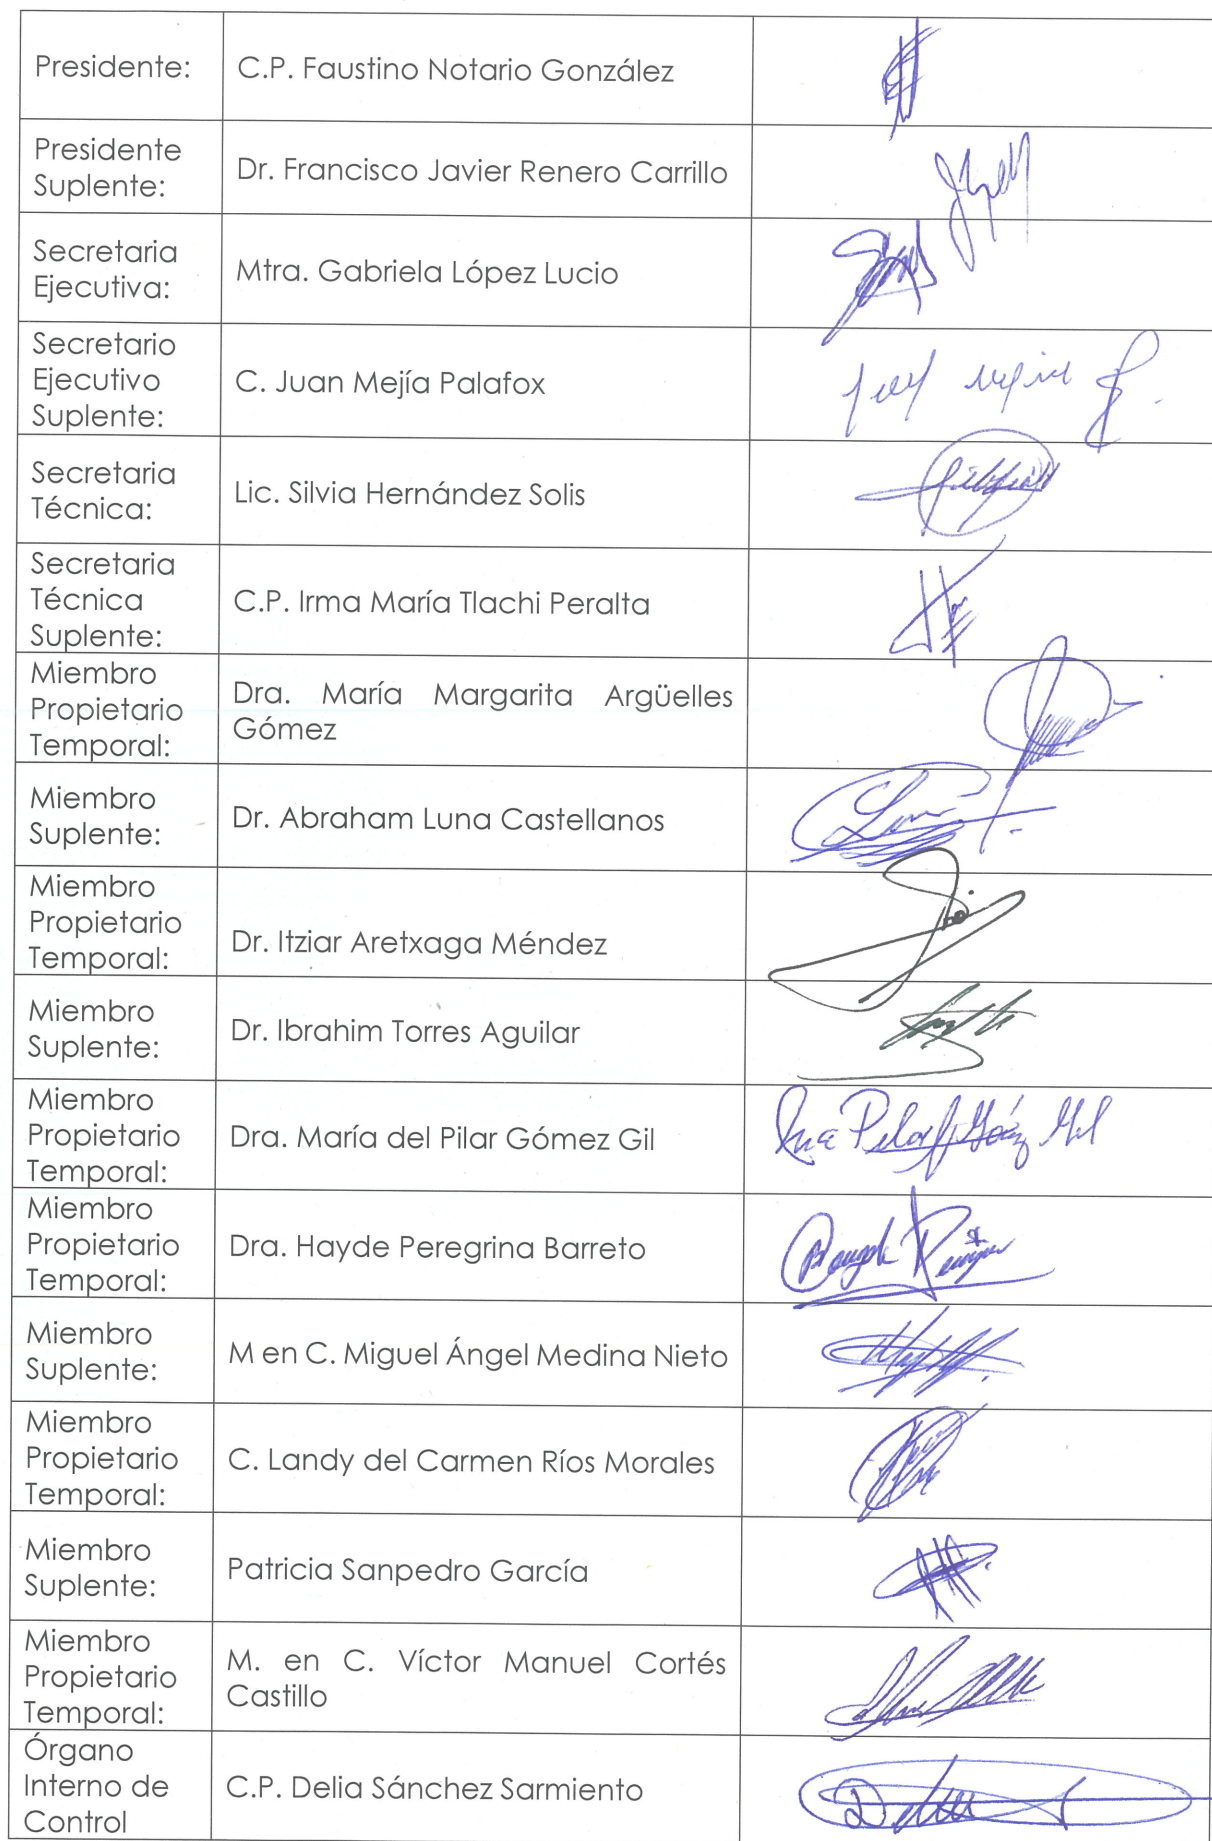 Presidente:
C.P. Faustino Notario González
Presidente
Suplente:
Dr. Francisco Javier Renero Carrillo
Secretaria
Ejecutiva:
Mtra. Gabriela López Lucio
Secretario
Ejecutivo
Suplente:
C. Juan Mejía Palafox
Secretaria
Técnica:
Lic. Silvia Hernández Solis
Secretaria
Técnica
Suplente:
C.P. Irma María Tlachi Peralta
Miembro
Propietario
Temporal:
Dra. María Margarita Argüelles
Gómez
Miembro
Suplente:
Dr. Abraham Luna Castellanos
Miembro
Propietario
Temporal:
Dr. Itziar Aretxaga Méndez
Miembro
Suplente:
Dr. Ibrahim Torres Aguilar
Miembro
Propietario
Temporal:
Dra. María del Pilar Gómez Gil
Miembro
Propietario
Temporal:
Dra. Hayde Peregrina Barreto
Miembro
Suplente:
M en C. Miguel Ángel Medina Nieto
Miembro
Propietario
Temporal:
C. Landy del Carmen Ríos Morales
Miembro
Suplente:
Patricia Sanpedro García
Miembro
Propietario
Temporal:
M. en C. Víctor Manuel Cortés
Castillo
Órgano
Interno de
Control
C.P. Delia Sánchez Sarmiento